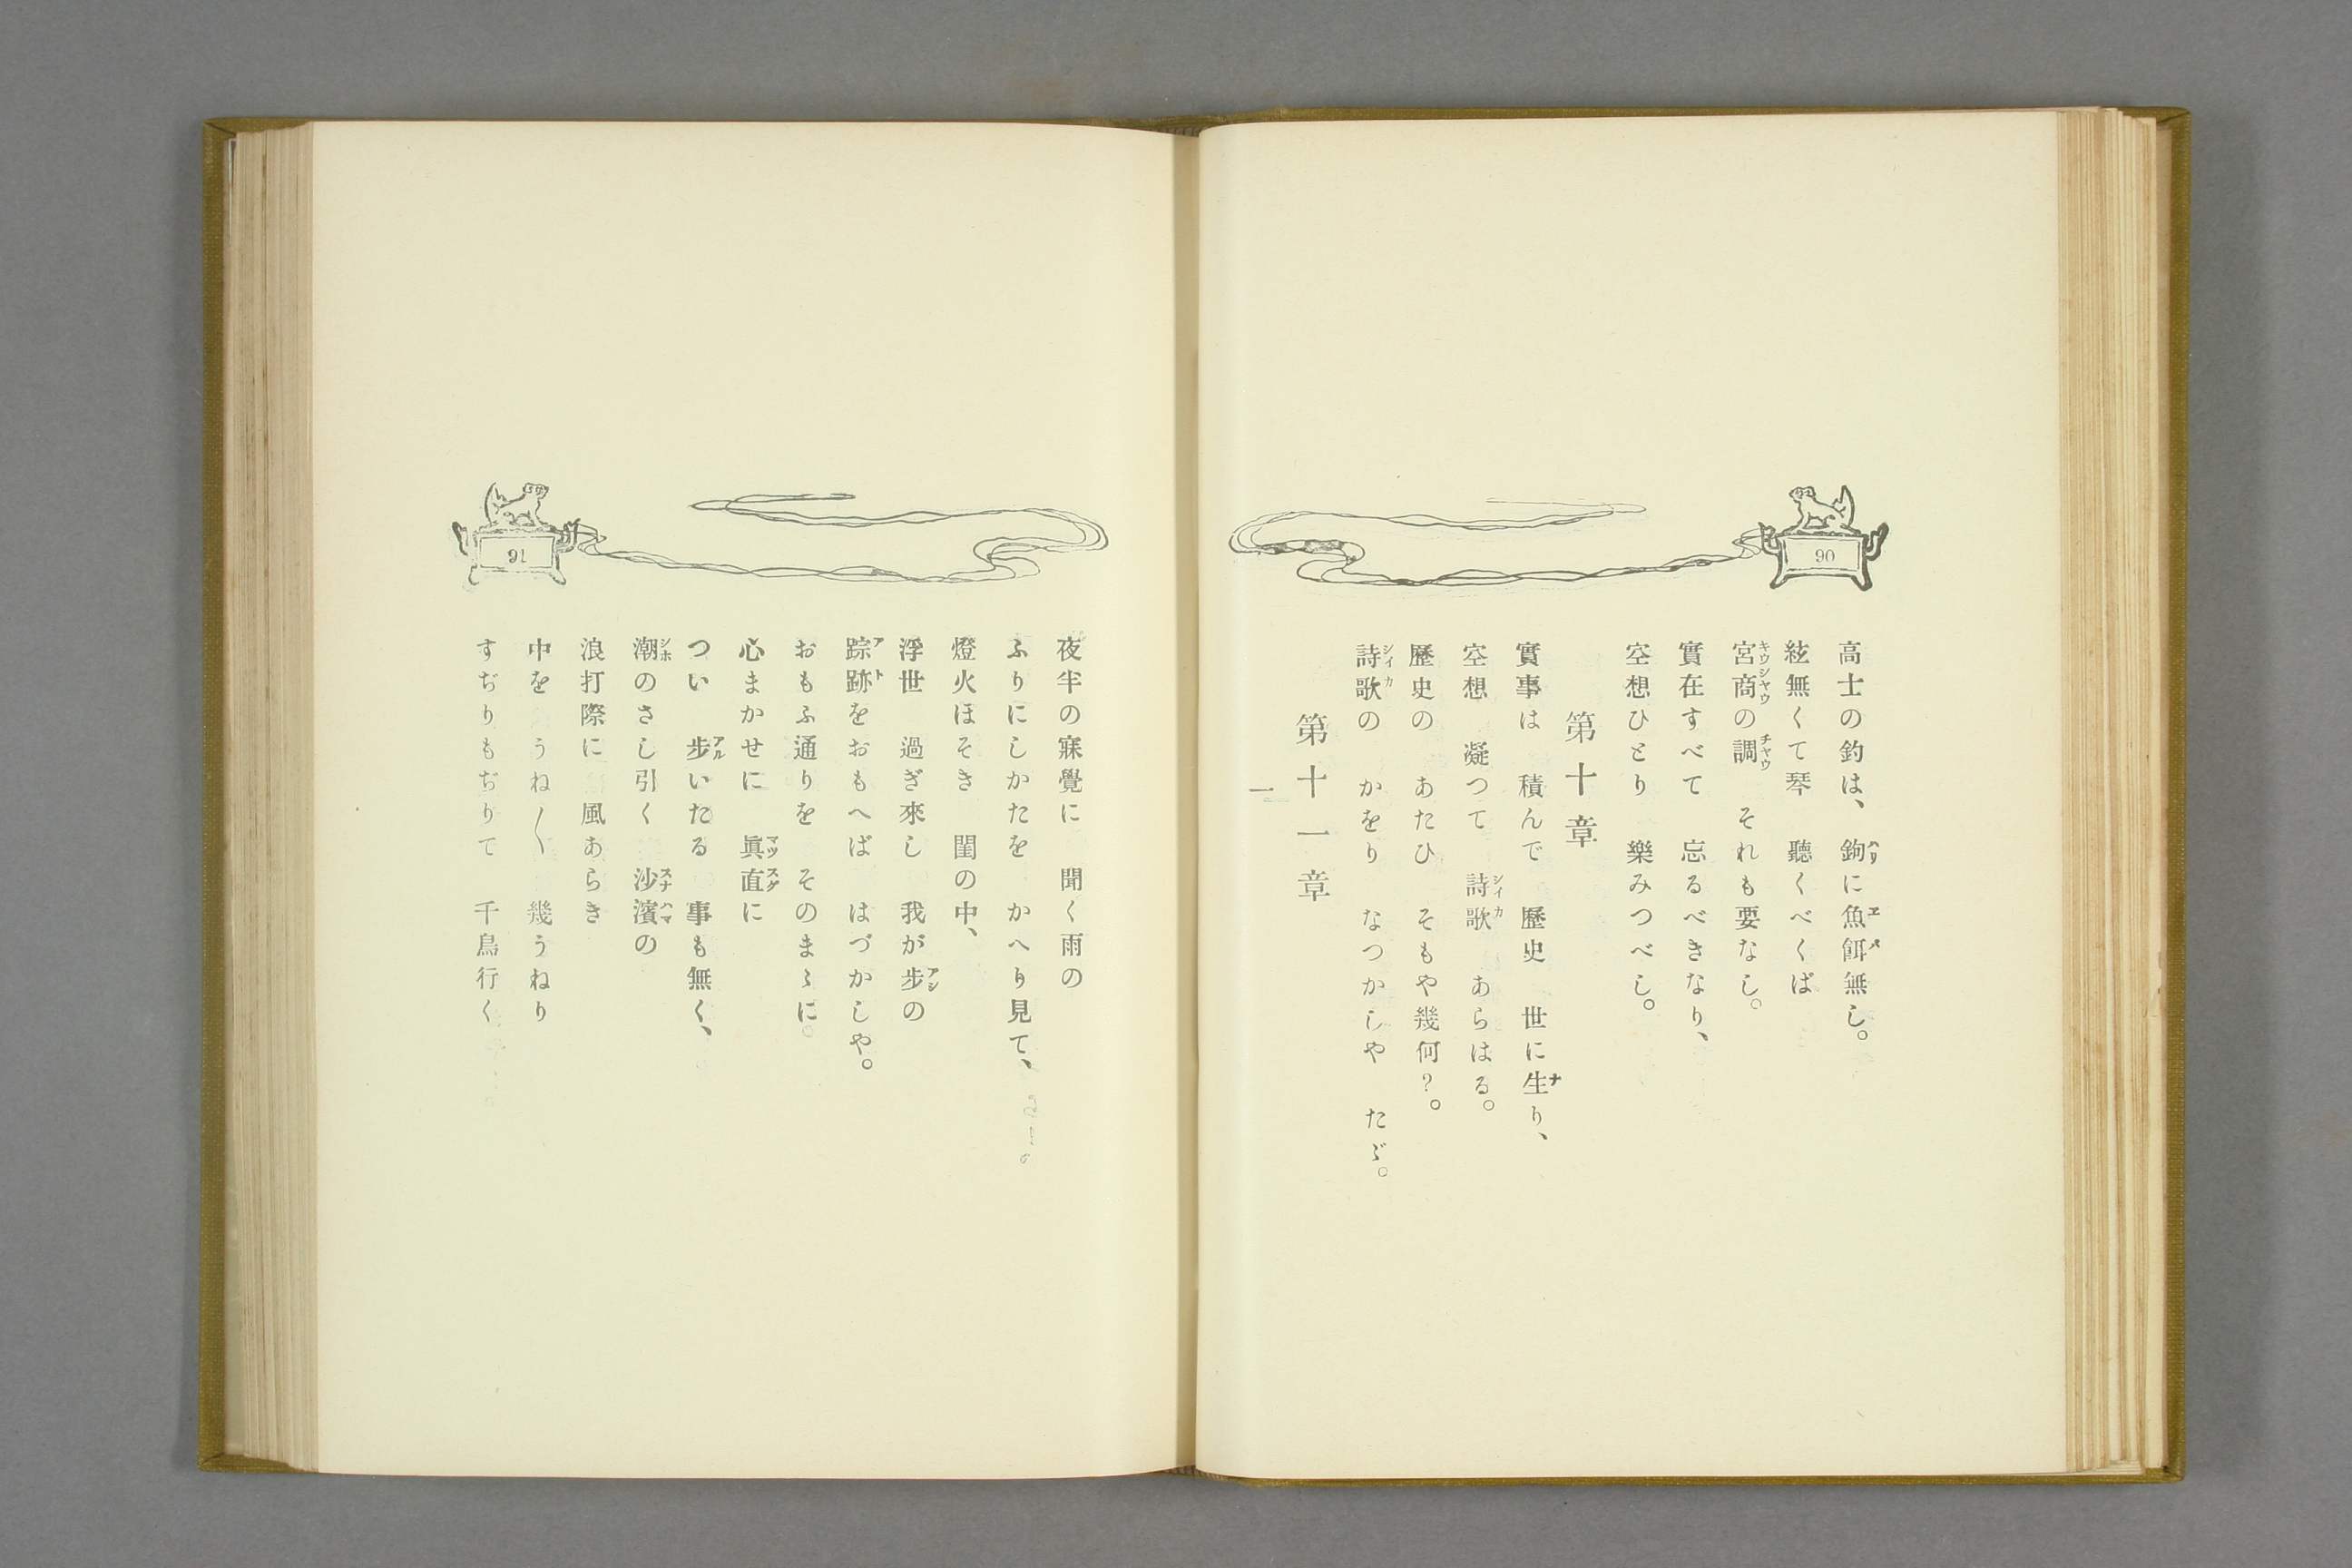 90
高士の釣は、　鉤に魚餌無し。
絃無くて琴　聽くべくば
宮商の調　それも要なし。
實在すべて　忘るべきなり、
空想ひとり　樂みつべし。
第十章
實事は　積んで　歷史　世に生り、
空想　凝つて　詩歌　あらはる。
歷史の　あたひ　そもや幾何？。
詩歌の　かをり　なつかしや　たゞ。
第十一章
一
91
夜半の寐覺に　聞く雨の
ふりにしかたを　かへり見て、
燈火ほそき　閨の中、
浮世　過ぎ來し　我が步の
踪跡をおもへば　はづかしや。
おもふ通りを　そのまゝに。
心まかせに　眞直に
つい　步いたる　事も無く、
潮のさし引く　沙濱の
浪打際に　風あらき
中を　うね〳〵　幾うねり
すぢりもぢりて　千鳥行く